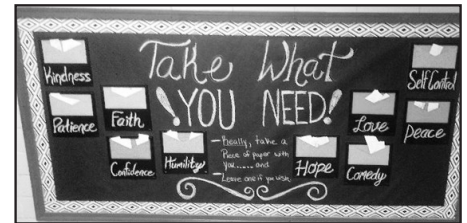 Take What
YOU NEED!
Kindness
Patience
Faith
Confidence
Humility
- Really, take a
Piece of paper with
you...... and
Leave one if you wish.
Hope
Love
Comedy
Self Control
Peace